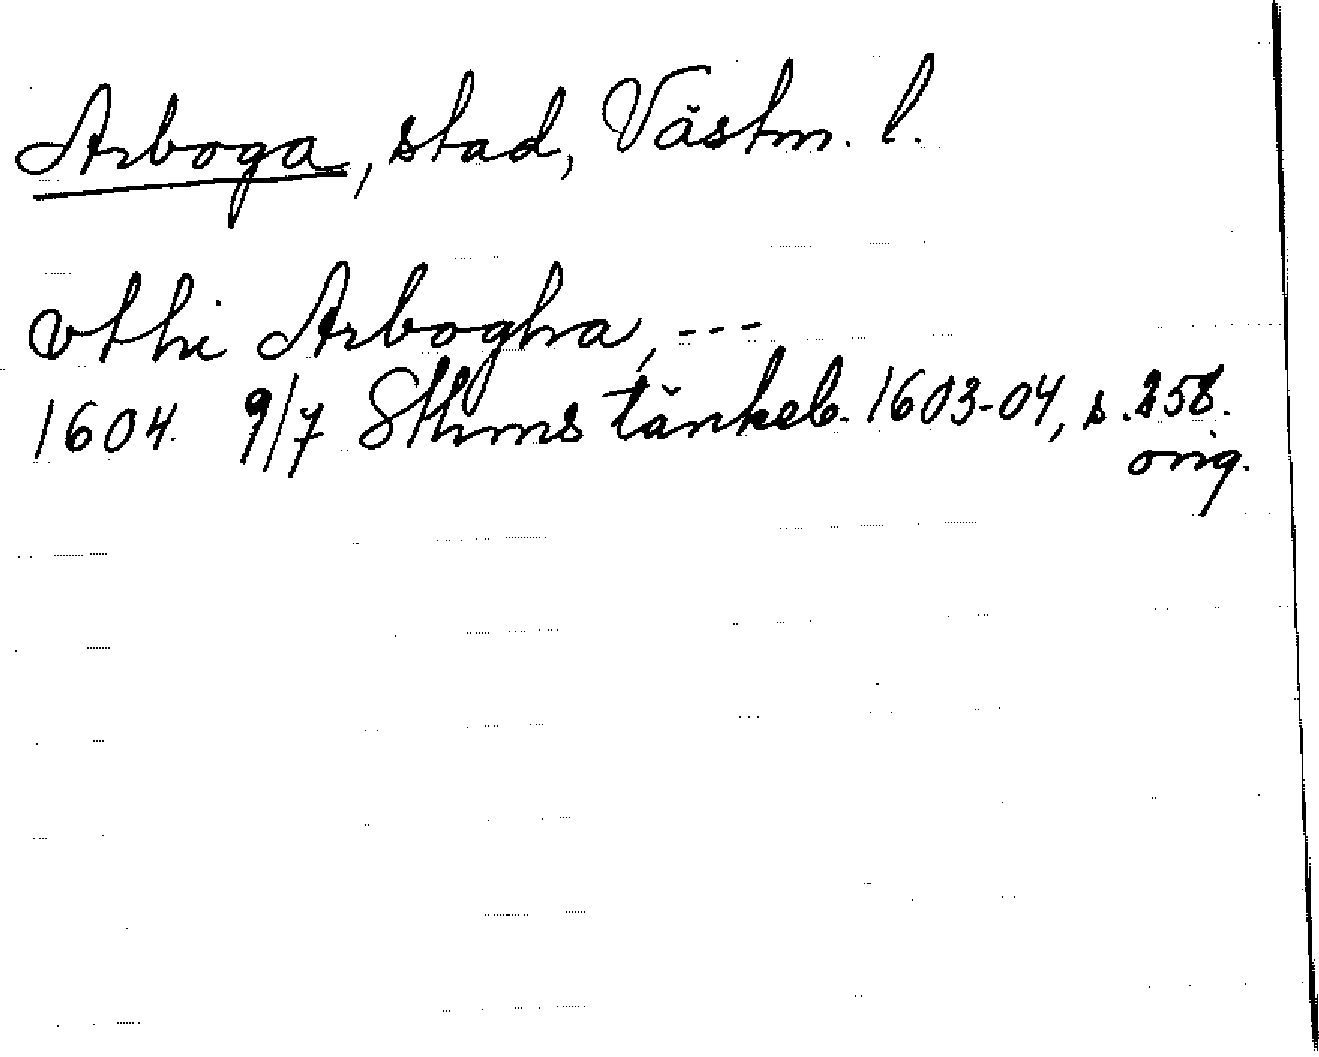 Arboga, stad, Västm. l.
vthi Arbogha, ---
1604 9/7 Sthms tänkeb. 1603-04, s. 258.
orig.